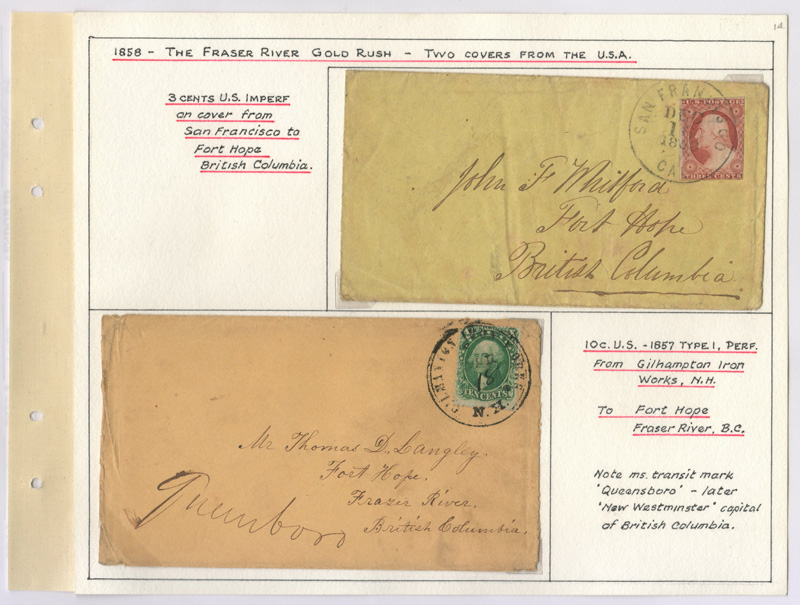 14
1858 - THE FRASER RIVER GOLD RUSH - TWO COVERS FROM THE U.S.A.
3 CENTS U.S. IMPERF
on cover from
San Francisco to
Fort Hope
British Columbia.
SAN FRANCISCO
DE
1
185
CA
U.S. POSTAGE
THREE CENTS
John F Whitford
Fort Hope
British Columbia.
TEN CENTS
N.H.
Mr Thomas D. Langley.
Fort Hope.
Frazer River.
British Columbia.
Queensboro
10c. U.S. - 1857 TYPE I, PERF.
From Gilhampton Iron
Works, N.H.
To Fort Hope
Fraser River, B.C.
Note ms. transit mark
'Queensboro' - later
'New Westminster' capital
of British Columbia.